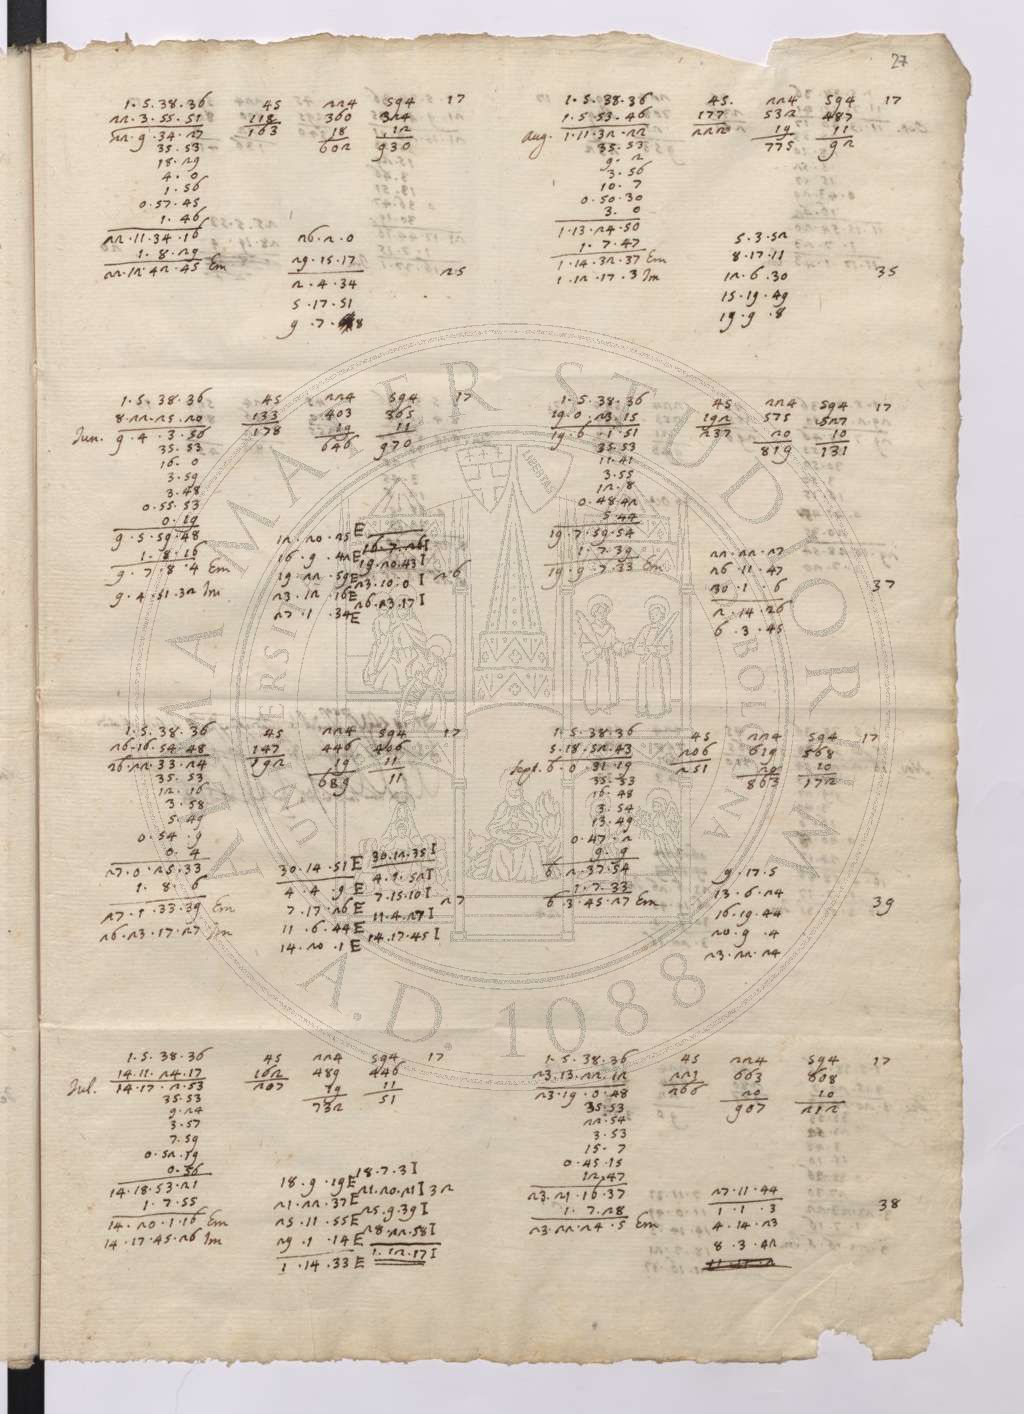 27
1.5.38.36 45 224 594 17
22.3.55.51 118 360 324
22.9.34.27 163 18 12
35.53 602 930
18.29
4.0
1.56
0.57.45
1.46
22.11.34.16
1.8.29
22.12.42.45 Em
26.2.0
29.15.17
2.4.34
5.17.51
9.7.8
25
1.5.38.36 45. 224 594 17
1.5.53.46 177 532 487
Aug. 1.11.32.22 222 19 11
35.53 775 92
9.2
3.56
10.7
0.50.30
3.0
1.13.24.50
1.7.47
1.14.32.37 Em
1.12.17.3 Im
5.3.52
8.17.11
12.6.30
15.19.49
19.9.8
35
1.5.38.36 45 224 594 17
8.22.25.20 133 403 365
Jun. 9.4.3.56 178 19 11
35.53 646 970
16.0
3.59
3.48
0.55.53
0.19
9.5.59.48
1.8.16
9.7.8.4 Em
9.4.51.32 Im
12.20.25 E
16.9.42 E 16.7.26 I
19.22.59 E 19.20.43 I
23.12.16 E 23.10.0 I
27.1.34 E 26.23.17 I
26
1.5.38.36 45 224 594 17
19.0.23.15 192 575 527
19.6.1.51 237 20 10
35.53 819 131
11.41
3.55
12.8
0.48.42
5.44
19.7.59.54
1.7.39
19.9.7.33 Em
22.22.27
26.11.47
30.1.6
2.14.26
6.3.45
37
1.5.38.36 45 224 594 17
26.16.54.48 147 446 406
26.22.33.24 192 19 11
35.53 689 11
12.16
3.58
5.49
0.54.9
0.4
27.0.25.33
1.8.6
27.1.33.39 Em
26.23.17.27 Im
30.14.51 E 30.12.35 I
4.4.9 E 4.1.52 I
7.17.26 E 7.15.10 I
11.6.44 E 11.4.27 I
14.20.1 E 14.17.45 I
27
1.5.38.36 45 224 594 17
5.18.52.43 206 619 568
Sept. 6.0.31.19 251 20 10
35.53 863 172
16.48
3.54
13.49
0.47.2
9.9
6.2.37.54
1.7.33
6.3.45.27 Em
9.17.5
13.6.24
16.19.44
20.9.4
23.22.24
39
1.5.38.36 45 224 594 17
14.11.24.17 162 489 446
Jul. 14.17.2.53 207 19 11
35.53 732 51
9.24
3.57
7.59
0.52.19
0.36
14.18.53.21
1.7.55
14.20.1.16 Em
14.17.45.26 Im
18.9.19 E 18.7.3 I
21.22.37 E 21.20.21 I 32
25.11.55 E 25.9.39 I
29.1.14 E 28.22.58 I
1.14.33 E 1.12.17 I
1.5.38.36 45 224 594 17
23.13.22.12 221 663 608
23.19.0.48 266 20 10
35.53 907 212
22.54
3.53
15.7
0.45.15
12.47
23.21.16.37
1.7.28
23.22.24.5 Em
27.11.44
1.1.3
4.14.23
8.3.42
38
ALMA MATER STUDIORUM
A.D. 1088